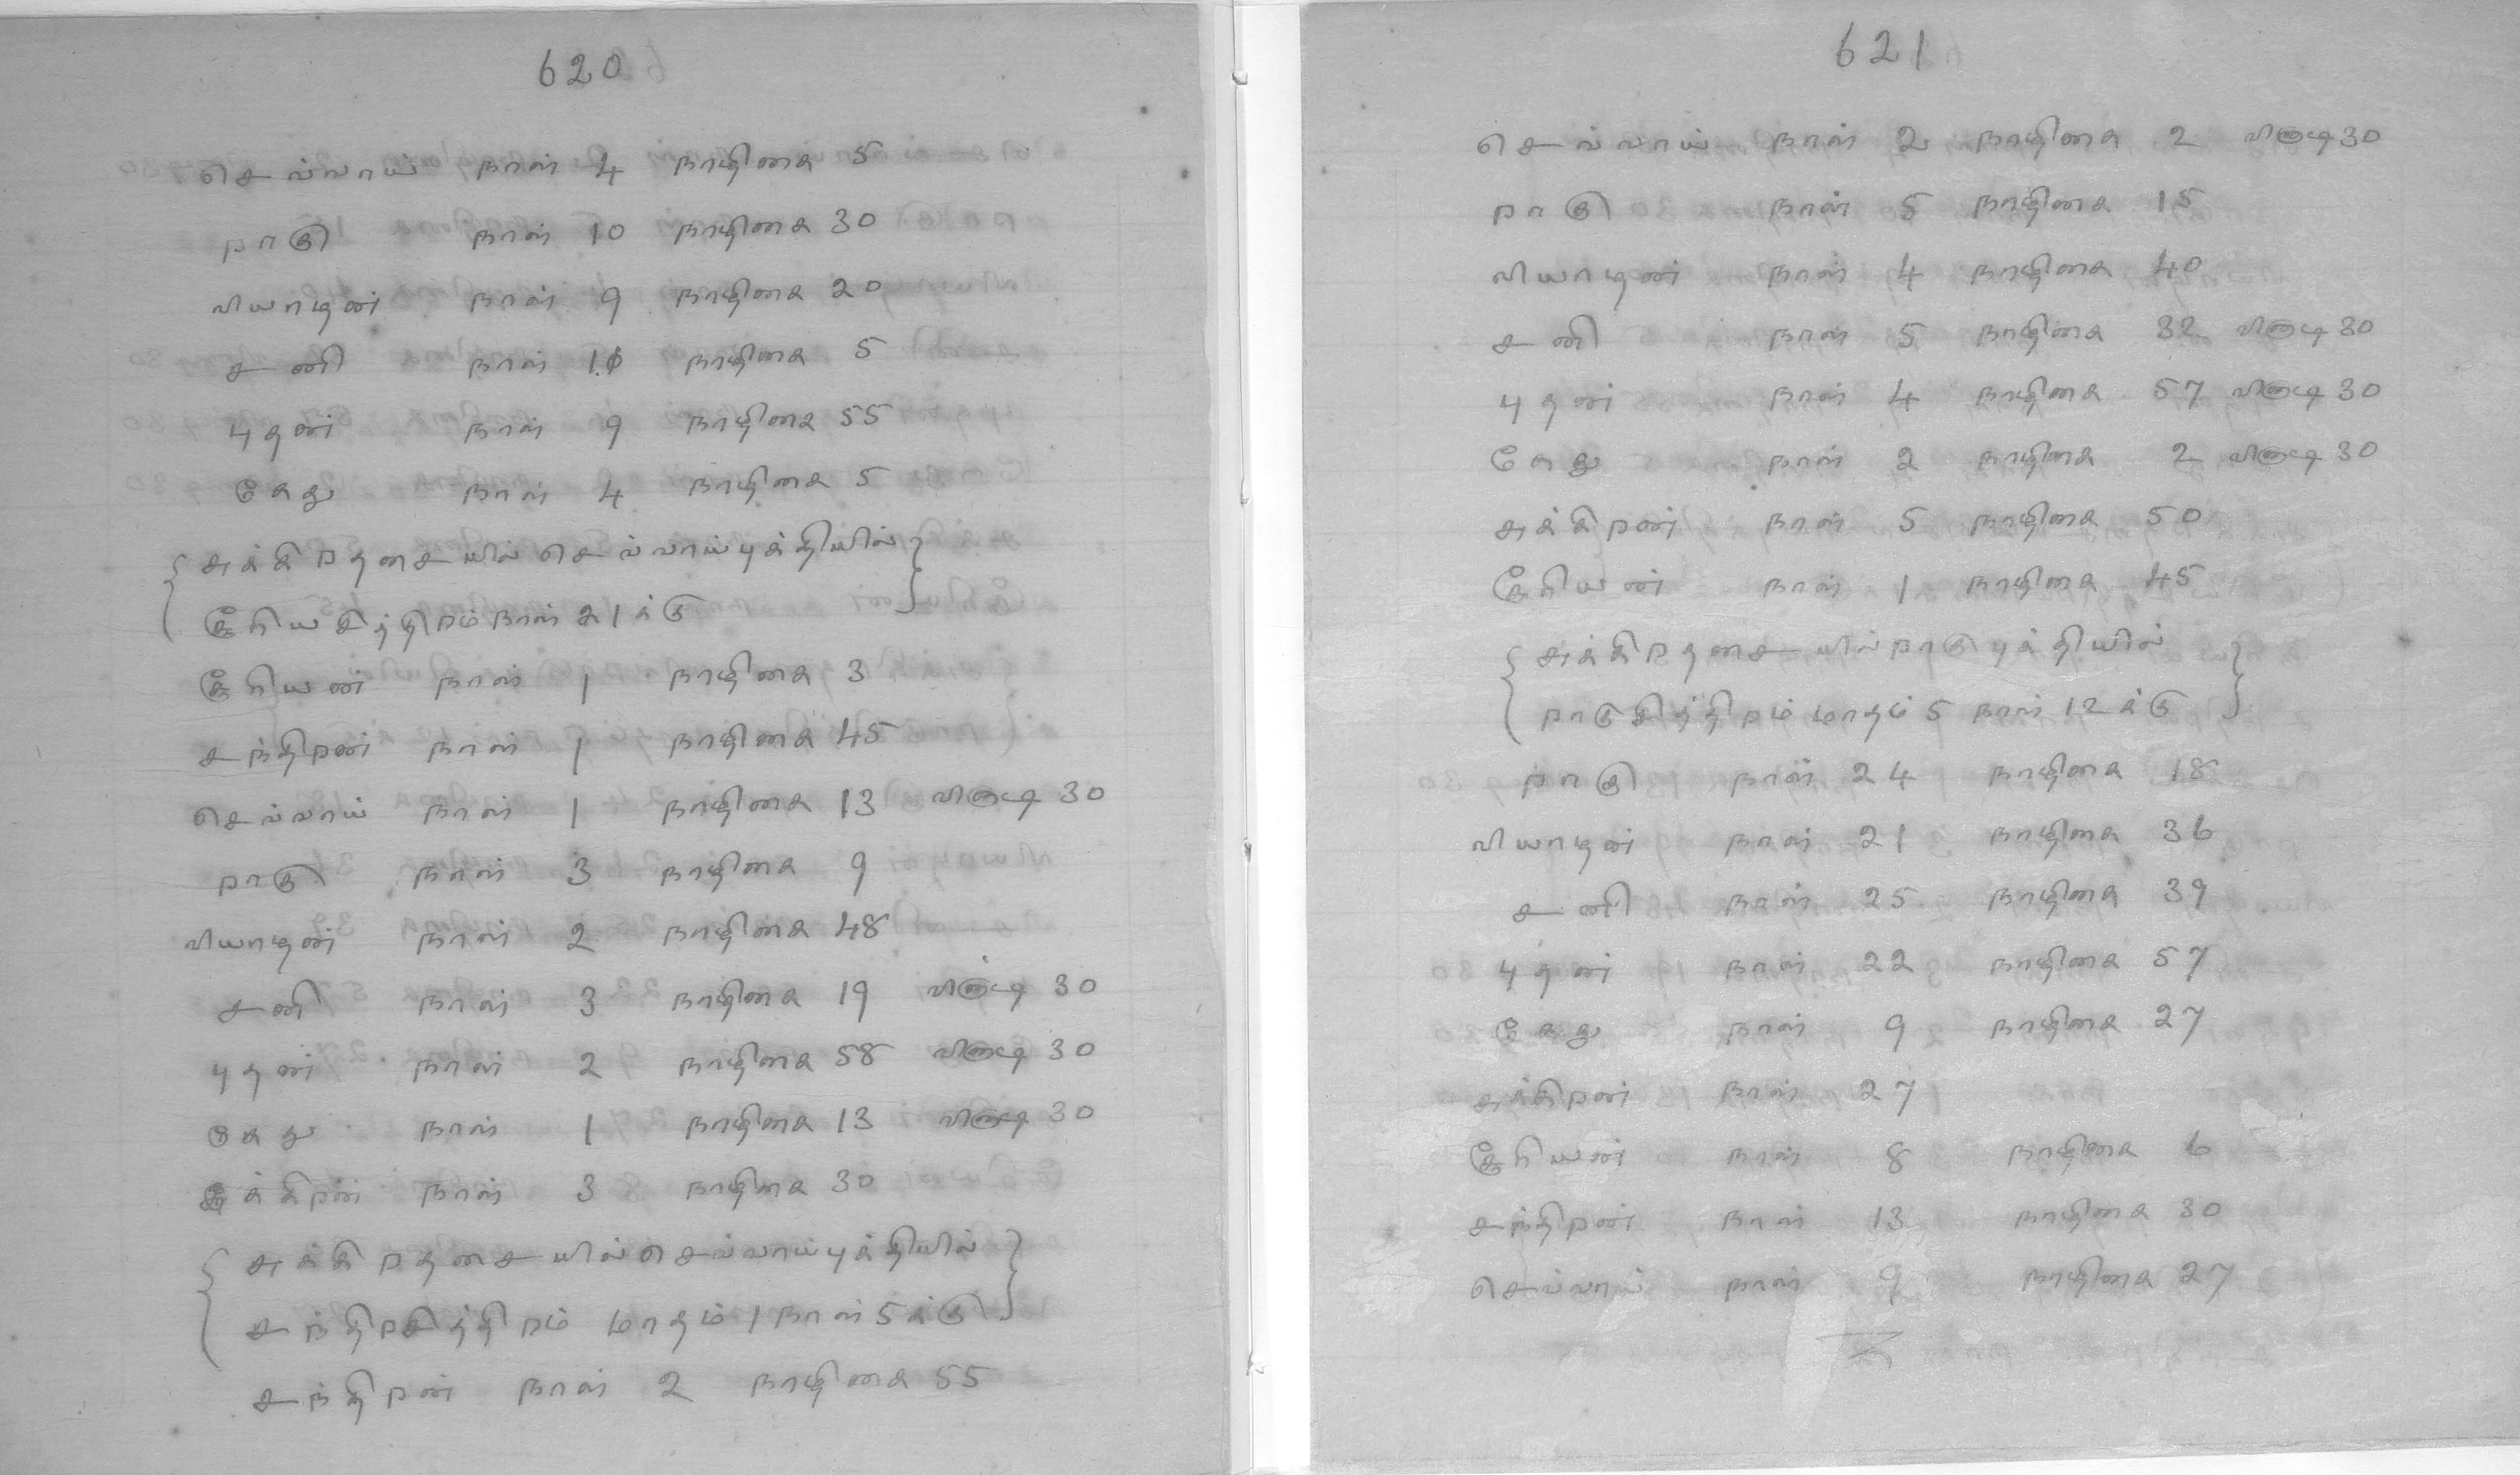 620
செவ்வாய் நாள் 4 நாழிகை 5
றாகு நாள் 10 நாழிகை 30
வியாழன் நாள் 9 நாழிகை 20
சனி நாள் 11 நாழிகை 5
புதன் நாள் 9 நாழிகை 55
கேது நாள் 4 நாழிகை 5
{ சுக்கிறதசையில் செவ்வாய்புக்தியில் }
{ சூரியசித்திறம் நாள் 21க்கு }
சூரியன் நாள் 1 நாழிகை 3
சந்திறன் நாள் 1 நாழிகை 45
செவ்வாய் நாள் 1 நாழிகை 13 விநாடி 30
றாகு நாள் 3 நாழிகை 9
வியாழன் நாள் 2 நாழிகை 48
சனி நாள் 3 நாழிகை 19 விநாடி 30
புதன் நாள் 2 நாழிகை 58 விநாடி 30
கேது நாள் 1 நாழிகை 13 விநாடி 30
சுக்கிறன் நாள் 3 நாழிகை 30
{ சுக்கிறதசையில் செவ்வாய்புக்தியில் }
{ சந்திறசித்திறம் மாதம் 1 நாள் 5க்கு }
சந்திறன் நாள் 2 நாழிகை 55
621
செவ்வாய் நாள் 2 நாழிகை 2 விநாடி 30
றாகு நாள் 5 நாழிகை 15
வியாழன் நாள் 4 நாழிகை 40
சனி நாள் 5 நாழிகை 32 விநாடி 30
புதன் நாள் 4 நாழிகை 57 விநாடி 30
கேது நாள் 2 நாழிகை 2 விநாடி 30
சுக்கிறன் நாள் 5 நாழிகை 50
சூரியன் நாள் 1 நாழிகை 45
{ சுக்கிறதசையில் றாகுபுக்தியில் }
{ றாகுசித்திறம் மாதம் 5 நாள் 12க்கு }
றாகு நாள் 24 நாழிகை 18
வியாழன் நாள் 21 நாழிகை 36
சனி நாள் 25 நாழிகை 39
புதன் நாள் 22 நாழிகை 57
கேது நாள் 9 நாழிகை 27
சுக்கிறன் நாள் 27
சூரியன் நாள் 8 நாழிகை 6
சந்திறன் நாள் 13 நாழிகை 30
செவ்வாய் நாள் 9 நாழிகை 27